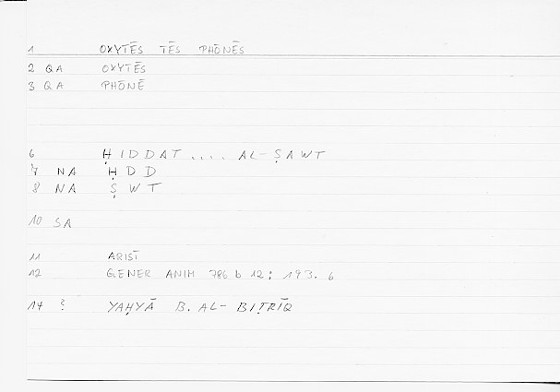 1 OXYTĒS TĒS PHŌNĒS
2 QA OXYTĒS
3 QA PHŌNĒ
6 ḤIDDAT .... AL-ṢAWT
7 NA ḤDD
8 NA ṢWT
10 SA
11 ARIST
12 GENER ANIM 786 b 12; 193. 6
14 ? YAḤYĀ B. AL-BIṬRĪQ